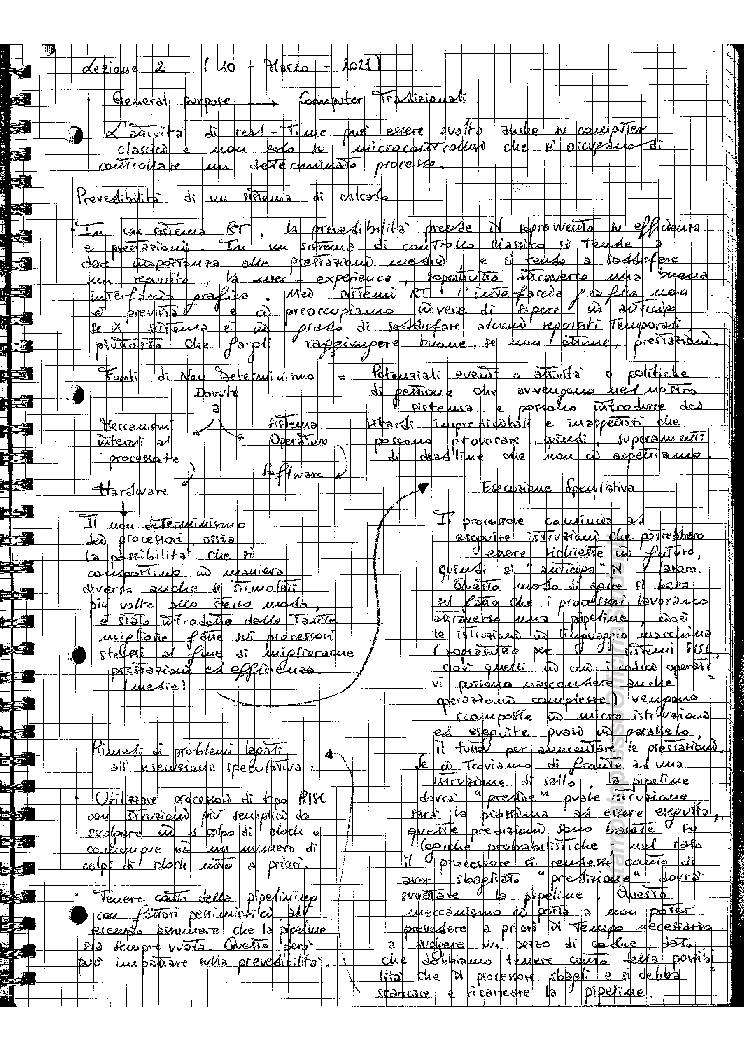 Lezione 2 (10 - Marzo - 2021)
General purpose → Computer Tradizionali
L'attività di real-time può essere svolta anche su computer
classici e non solo su microcontrollori che si occupano di
controllare un determinato processo.
Prevedibilità di un sistema di calcolo
In un sistema RT, la prevedibilità prende il sopravvento su efficienza
e prestazioni. In un sistema di controllo classico si tende a
dare importanza alle prestazioni medie e si tende a soddisfare
un requisito, la user experience, attraverso una buona
interfaccia grafica. Nei sistemi RT l'interfaccia grafica non
è prevista e ci preoccupiamo invece di sapere in anticipo
se il sistema è in grado di soddisfare alcuni requisiti temporali
piuttosto che fargli raggiungere buone, se non ottime, prestazioni.
Fonti di Non Determinismo = Potenziali eventi o attività o politiche
Dovute
a
di gestione che avvengono nel nostro
sistema e possono introdurre dei
ritardi imprevedibili e inaspettati che
possono provocare quindi superamenti
di deadline che non ci aspettiamo.
Meccanismi
interni al
processore
Sistema
Operativo
Software
Hardware
Il non determinismo
dei processori, ossia
la possibilità che si
comportino in maniera
diversa anche se stimolati
più volte allo stesso modo,
è stato introdotto dalle tante
migliorie fatte sui processori
stessi al fine di migliorarne
prestazioni ed efficienza
(medie)
Esecuzione Speculativa
Il processore comincia ad
eseguire istruzioni che potrebbero
essere richieste in futuro,
quindi si "anticipa" il lavoro.
Questo modo di agire si basa
sul fatto che i processori lavorano
attraverso una pipeline, cioè
le istruzioni in linguaggio macchina
(soprattutto per i sistemi CISC,
cioè quelli in cui i codici operativi
vi possono nascondere anche
operazioni complesse) vengono
scomposte in micro istruzioni
ed eseguite quasi in parallelo,
il tutto per aumentare le prestazioni.
Se ci troviamo di fronte ad una
istruzione di salto, la pipeline
dovrà "predire" quale istruzione
sarà la prossima ad essere eseguita,
queste predizioni sono basate su
logiche probabilistiche nel caso
il processore si rendesse conto di
aver sbagliato "predizione" dovrà
svuotare la pipeline. Questo
meccanismo ci porta a non poter
prendere a priori il tempo necessario
a svolgere un pezzo di codice, dato
che dobbiamo tenere conto della possibi-
lità che il processore sbagli e si debba
scaricare e ricaricare la pipeline.
Rimedi ai problemi legati
all'esecuzione speculativa:
Utilizzare processori di tipo RISC
con istruzioni più semplici da
svolgere in 1 colpo di clock o
comunque in un numero di
colpi di clock noto a priori.
Tenere conto della pipelining
con fattori pessimistici ad
esempio assumere che la pipeline
sia sempre vuota. Questo però
può impattare sulla prevedibilità.